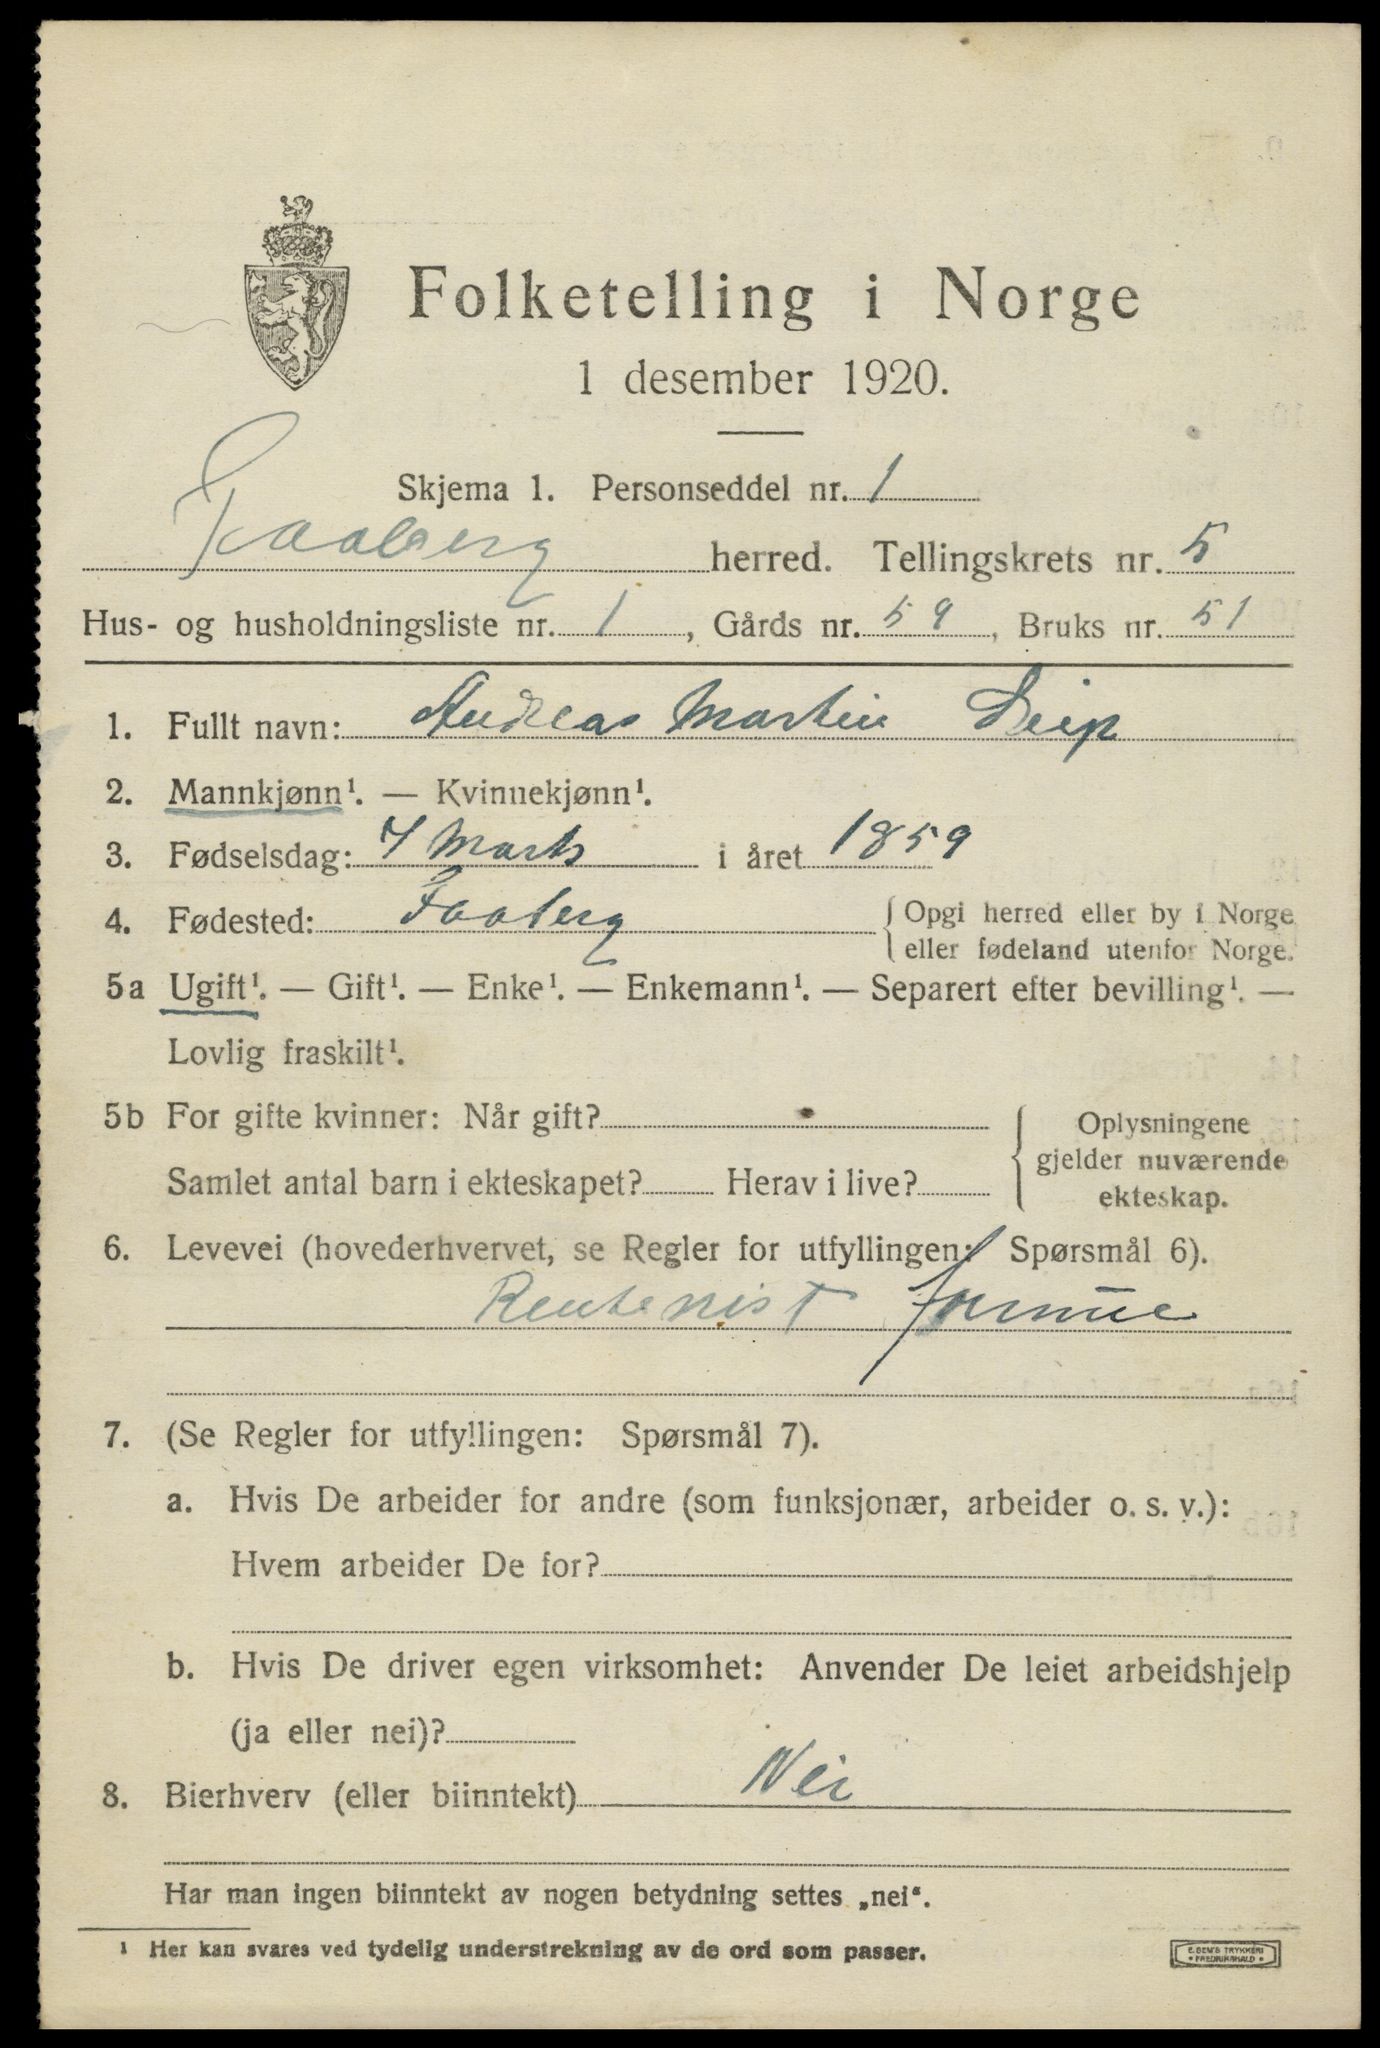 Folketelling i Norge
1 desember 1920.
Skjema 1. Personseddel nr. 1
Faaberg herred. Tellingskrets nr. 5
Hus- og husholdningsliste nr. 1, Gårds nr. 59, Bruks nr. 51
1. Fullt navn: Andreas Martin
2. Mannkjønn¹. — Kvinnekjønn¹.
3. Fødselsdag: 7 Marts i året 1859
4. Fødested: Faaberg {Opgi herred eller by i Norge
eller fødeland utenfor Norge.
5a Ugift¹. — Gift¹. — Enke¹. — Enkemann¹. — Separert efter bevilling¹. —
Lovlig fraskilt¹.
5b For gifte kvinner: Når gift?
Samlet antal barn i ekteskapet? Herav i live?
{Oplysningene
gjelder nuværende
ekteskap.
6. Levevei (hovederhvervet, se Regler for utfyllingen: Spørsmål 6).
Rentenist formue
7. (Se Regler for utfyllingen: Spørsmål 7).
a. Hvis De arbeider for andre (som funksjonær, arbeider o. s. v.):
Hvem arbeider De for?
b. Hvis De driver egen virksomhet: Anvender De leiet arbeidshjelp
(ja eller nei)?
8. Bierhverv (eller biinntekt) Nei
Har man ingen biinntekt av nogen betydning settes „nei“.
¹ Her kan svares ved tydelig understrekning av de ord som passer.
E. SEM'S TRYKKERI
• FREDRIKSHALD •